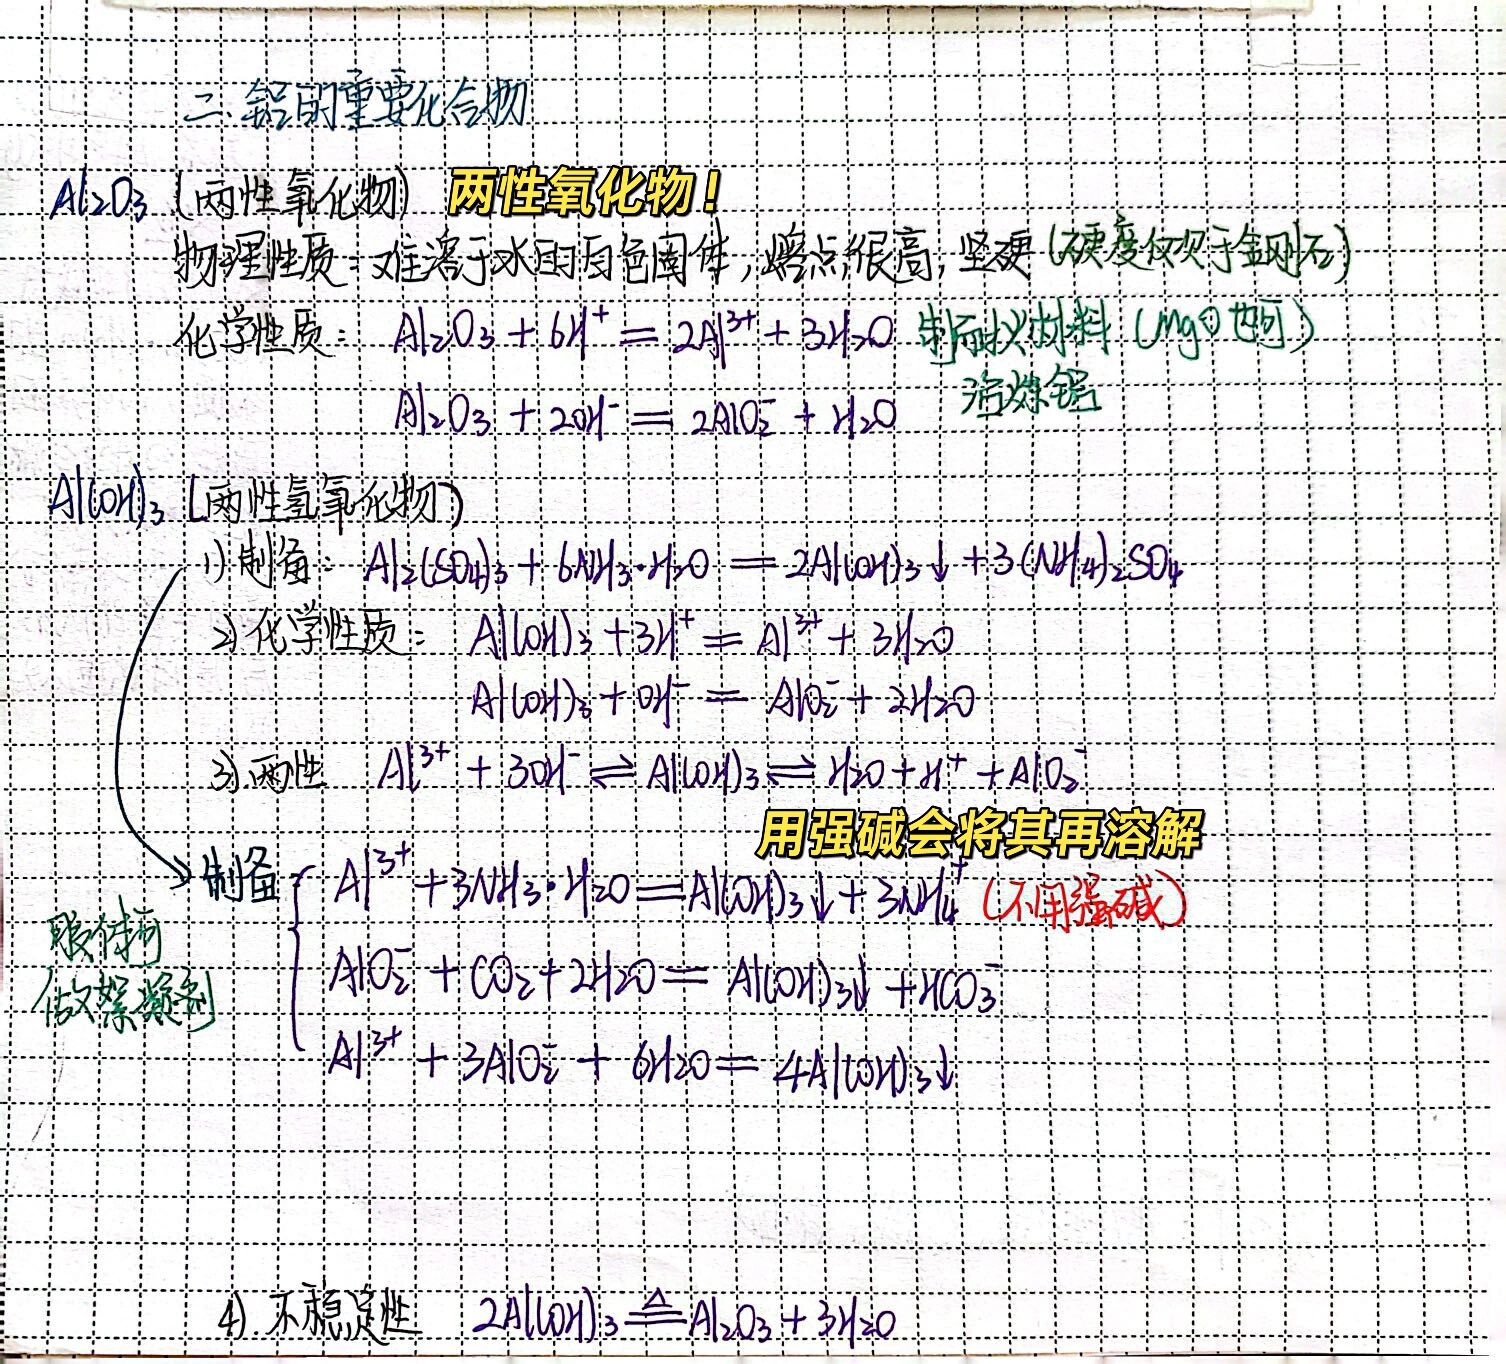 二.铝的重要化合物
Al₂O₃ (两性氧化物) 两性氧化物！
物理性质：难溶于水的白色固体，熔点很高，坚硬(硬度仅次于金刚石)
化学性质： Al₂O₃ + 6H⁺ = 2Al³⁺ + 3H₂O 制耐火材料 (MgO也可)
Al₂O₃ + 2OH⁻ = 2AlO₂⁻ + H₂O 冶炼铝
Al(OH)₃ (两性氢氧化物)
1) 制备: Al₂(SO₄)₃ + 6NH₃·H₂O = 2Al(OH)₃↓ + 3(NH₄)₂SO₄
2) 化学性质： Al(OH)₃ + 3H⁺ = Al³⁺ + 3H₂O
Al(OH)₃ + OH⁻ = AlO₂⁻ + 2H₂O
3) 两性 Al³⁺ + 3OH⁻ ⇌ Al(OH)₃ ⇌ H₂O + H⁺ + AlO₂⁻
用强碱会将其再溶解
制备 Al³⁺ + 3NH₃·H₂O = Al(OH)₃↓ + 3NH₄⁺ (不用强碱)
胶体可
做絮凝剂
AlO₂⁻ + CO₂ + 2H₂O = Al(OH)₃↓ + HCO₃⁻
Al³⁺ + 3AlO₂⁻ + 6H₂O = 4Al(OH)₃↓
4). 不稳定性 2Al(OH)₃ ≜ Al₂O₃ + 3H₂O